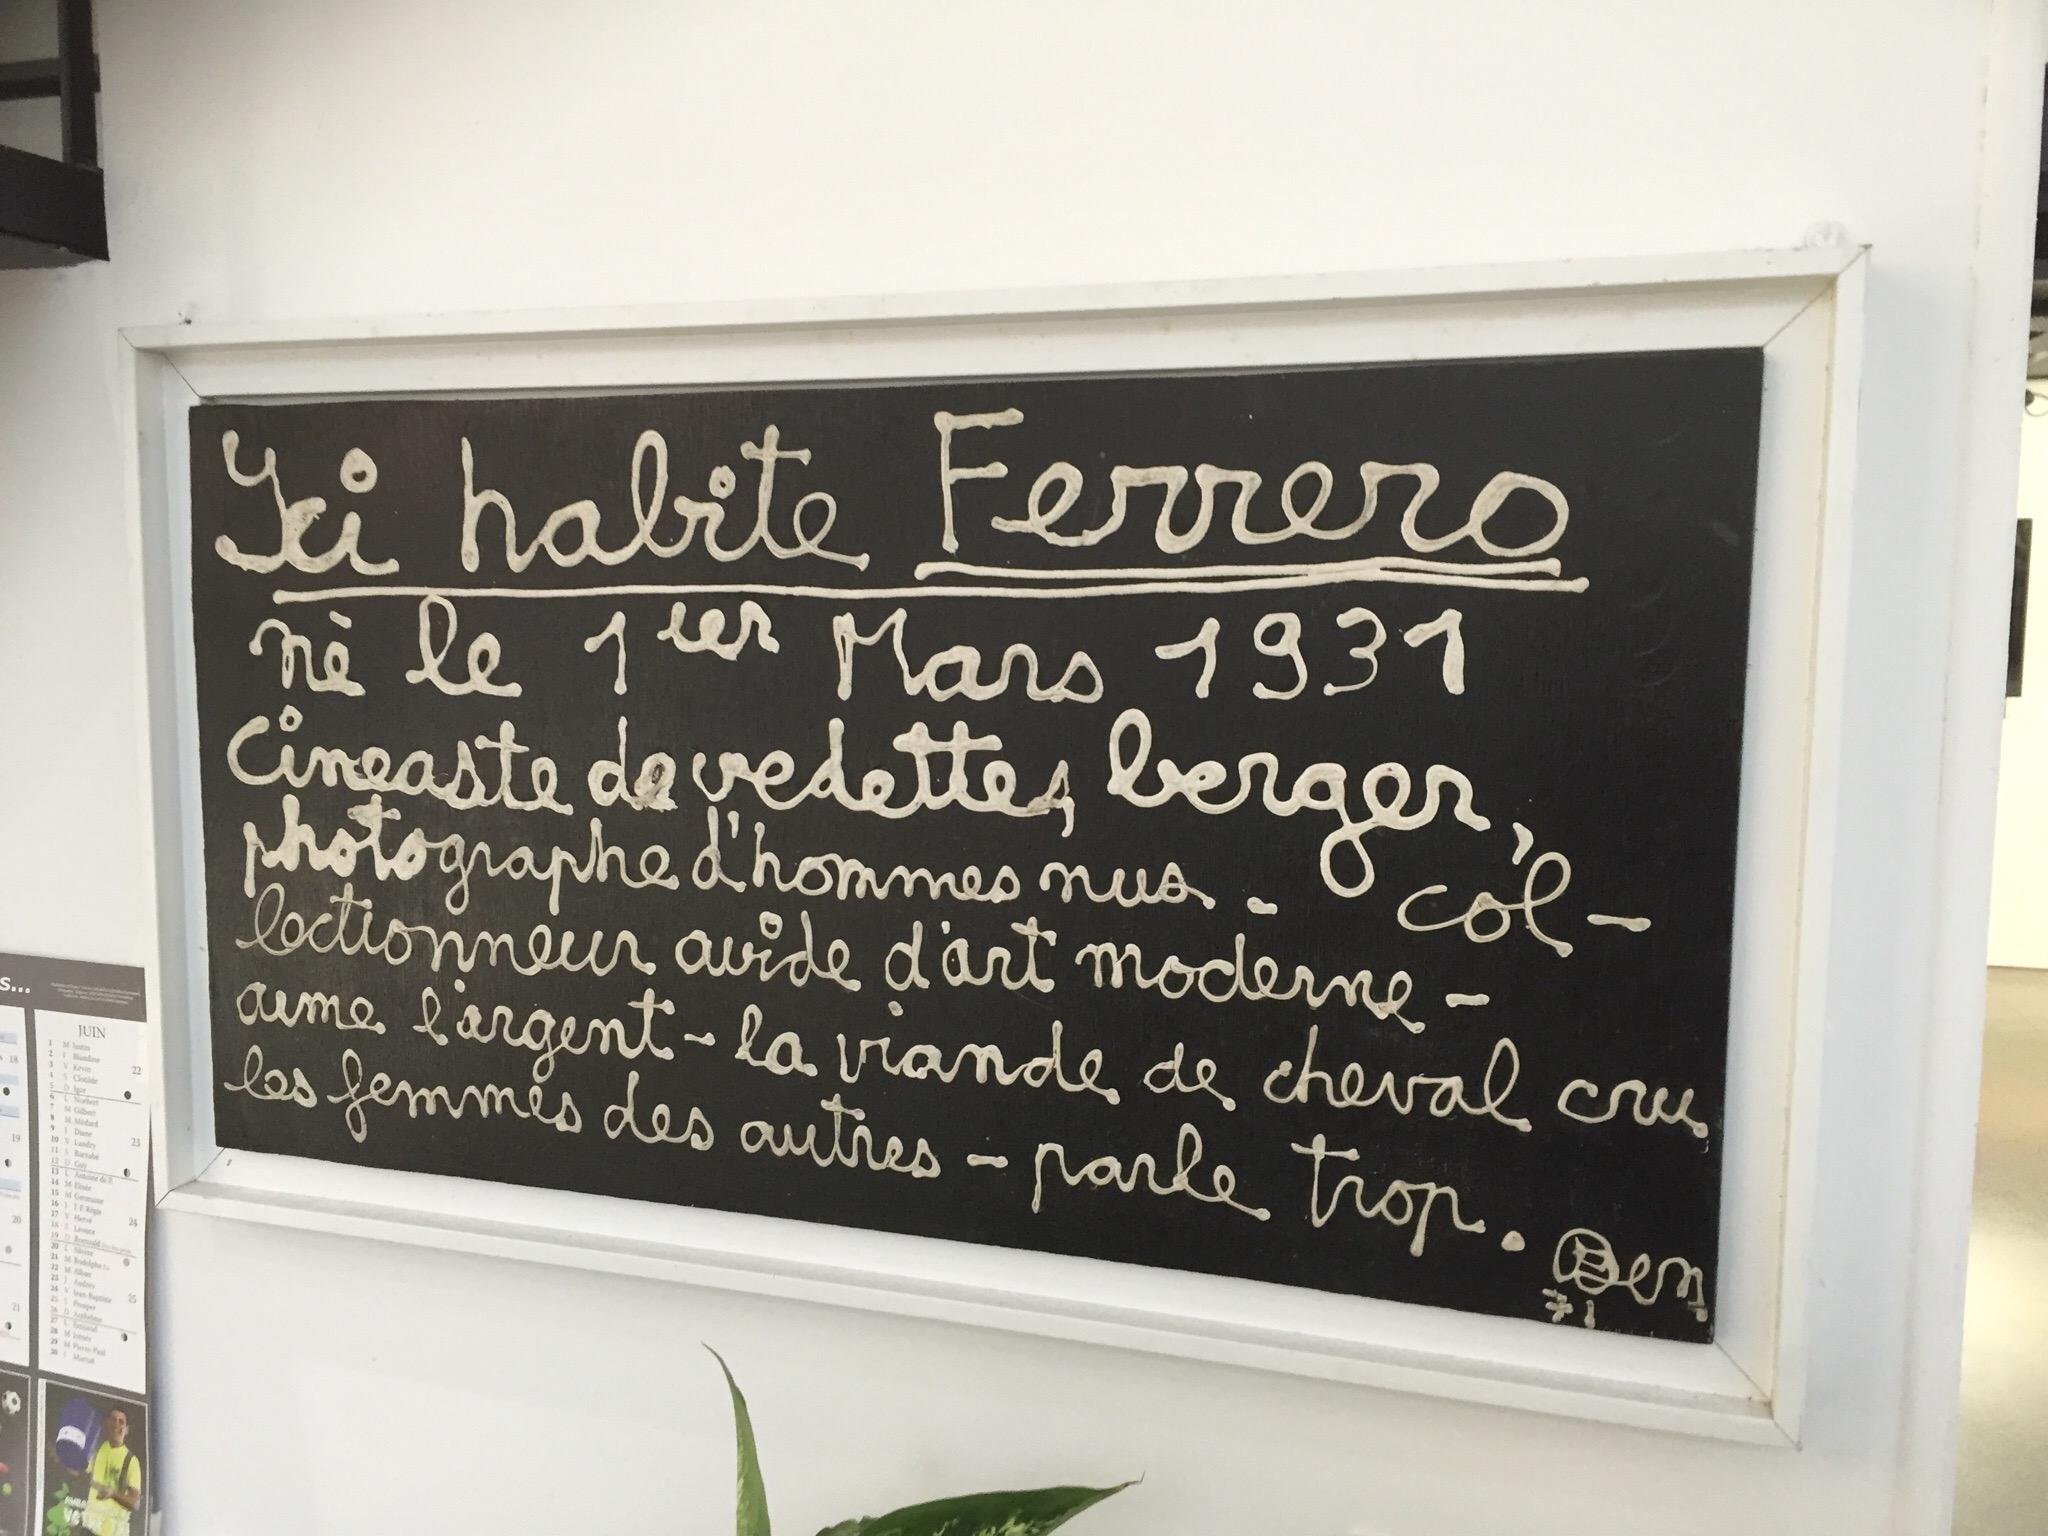 Ici habite Ferrero
né le 1ier Mars 1931
Cineaste de vedettes, berger,
photographe d'hommes nus - col-
lectionneur avide d'art moderne -
aime l'argent - la viande de cheval cru
les femmes des autres - parle trop.
Ben
71
s...
JUIN
1 M Justin
2 J Blandine
3 V Kévin
4 S Clotilde
5 D Igor
6 L Norbert
7 M Gilbert
8 M Médard
9 J Diane
10 V Landry
11 S Barnabé
12 D Guy
13 L Antoine de P.
14 M Elisée
15 M Germaine
16 J J-F. Régis
17 V Hervé
18 S Léonce
19 D Romuald
20 L Silvère
21 M Rodolphe
22 M Alban
23 J Audrey
24 V Jean-Baptiste
25 S Prosper
26 D Anthelme
27 L Fernand
28 M Irénée
29 M Pierre-Paul
30 J Martial
22
23
24
25
18
19
20
21